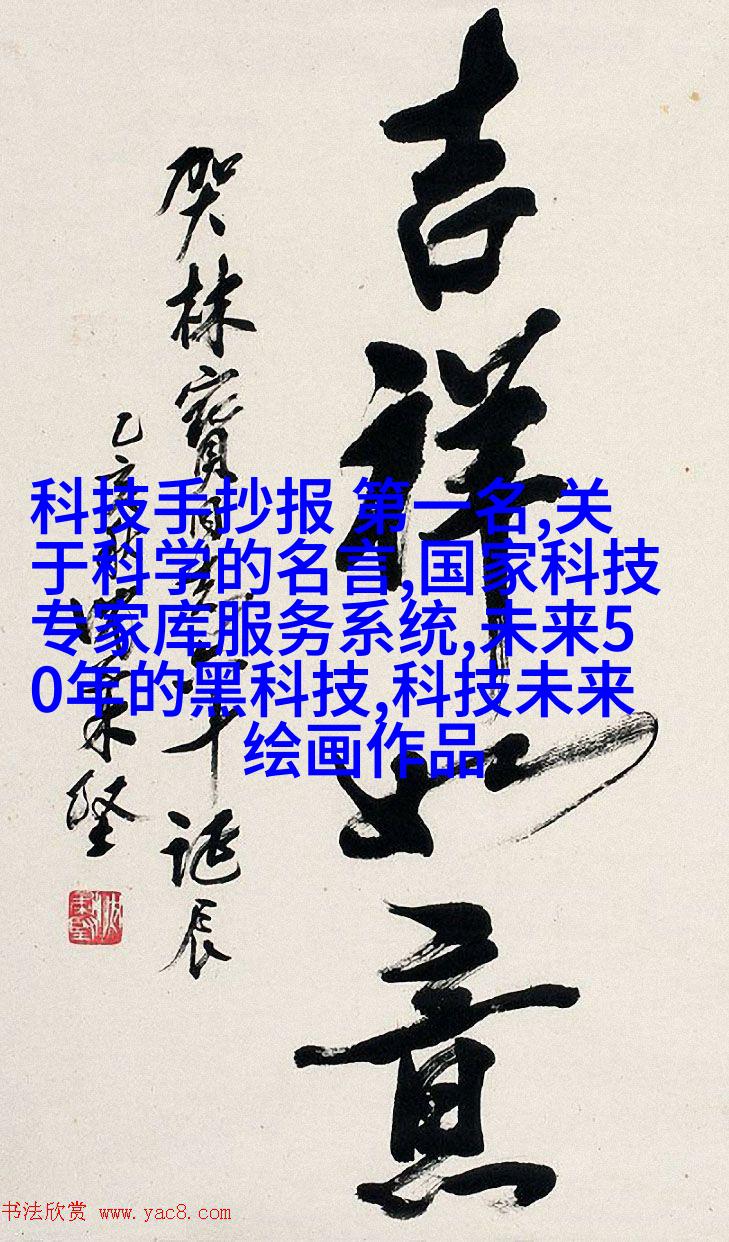 吉祥如意
贺林寶同 诞辰
乙亥秋
科技手抄报 第一名,关
于科学的名言,国家科技
专家库服务系统,未来5
0年的黑科技,科技未来
绘画作品
书法欣赏 www.yac8.com